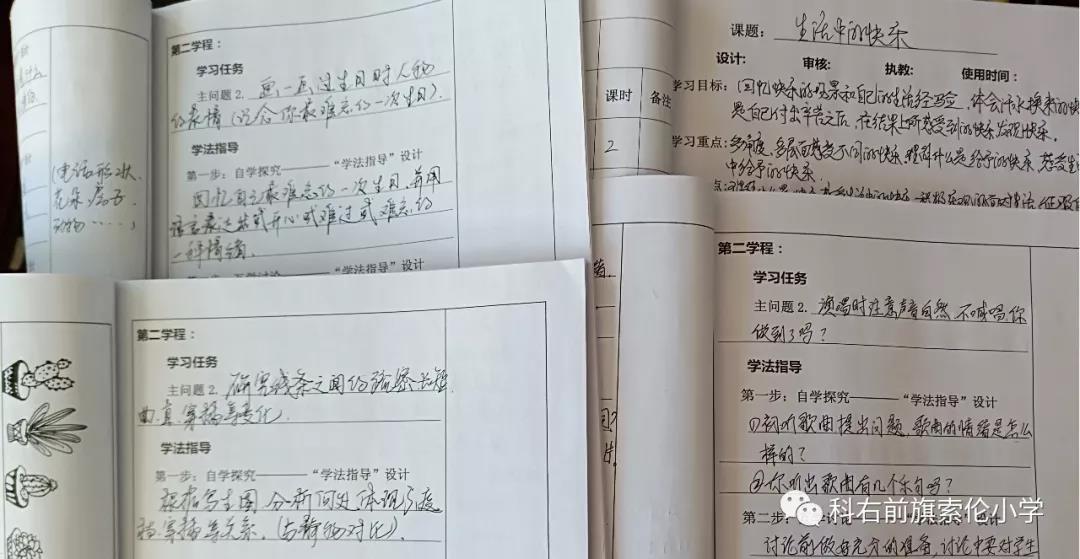 第二学程：
学习任务
主问题2. 画一画过生日时人物
的表情（说令你最难忘的一次生日）.
学法指导
第一步：自学探究———“学法指导”设计
回忆自己最难忘的一次生日,并用
语言表达或开心或难过或难忘的
一种情绪.
“学法指导”设计
（电话形状.
花朵.房子.
动物……）
课题：生活中的快乐
设计： 审核： 执教： 使用时间：
课时 备注
2
学习目标：回忆快乐的风景和自己的生活经验,体会汗水换来的快
是自己付出辛苦之后,在结果上所感受到的快乐发现快乐.
学习重点：多角度、多层面感受不同的快乐,理解什么是给予的快乐,感受生
中给予的快乐.
第二学程：
学习任务
主问题2. 研究线条之间的疏密长短
曲直穿插等变化.
学法指导
第一步：自学探究———“学法指导”设计
根据写生图分析何处体现了疏
穿插等关系.（与静物对比）.
第二学程：
学习任务
主问题2. 演唱时注意声音自然,不喊唱,你
做到了吗？
学法指导
第一步：自学探究———“学法指导”设计
①初听歌曲提出问题,歌曲的情绪是怎么
样的？
②你听出歌曲有几个乐句吗？
第二步：
讨论前做好充分的准备,讨论中要对学生
科右前旗索伦小学